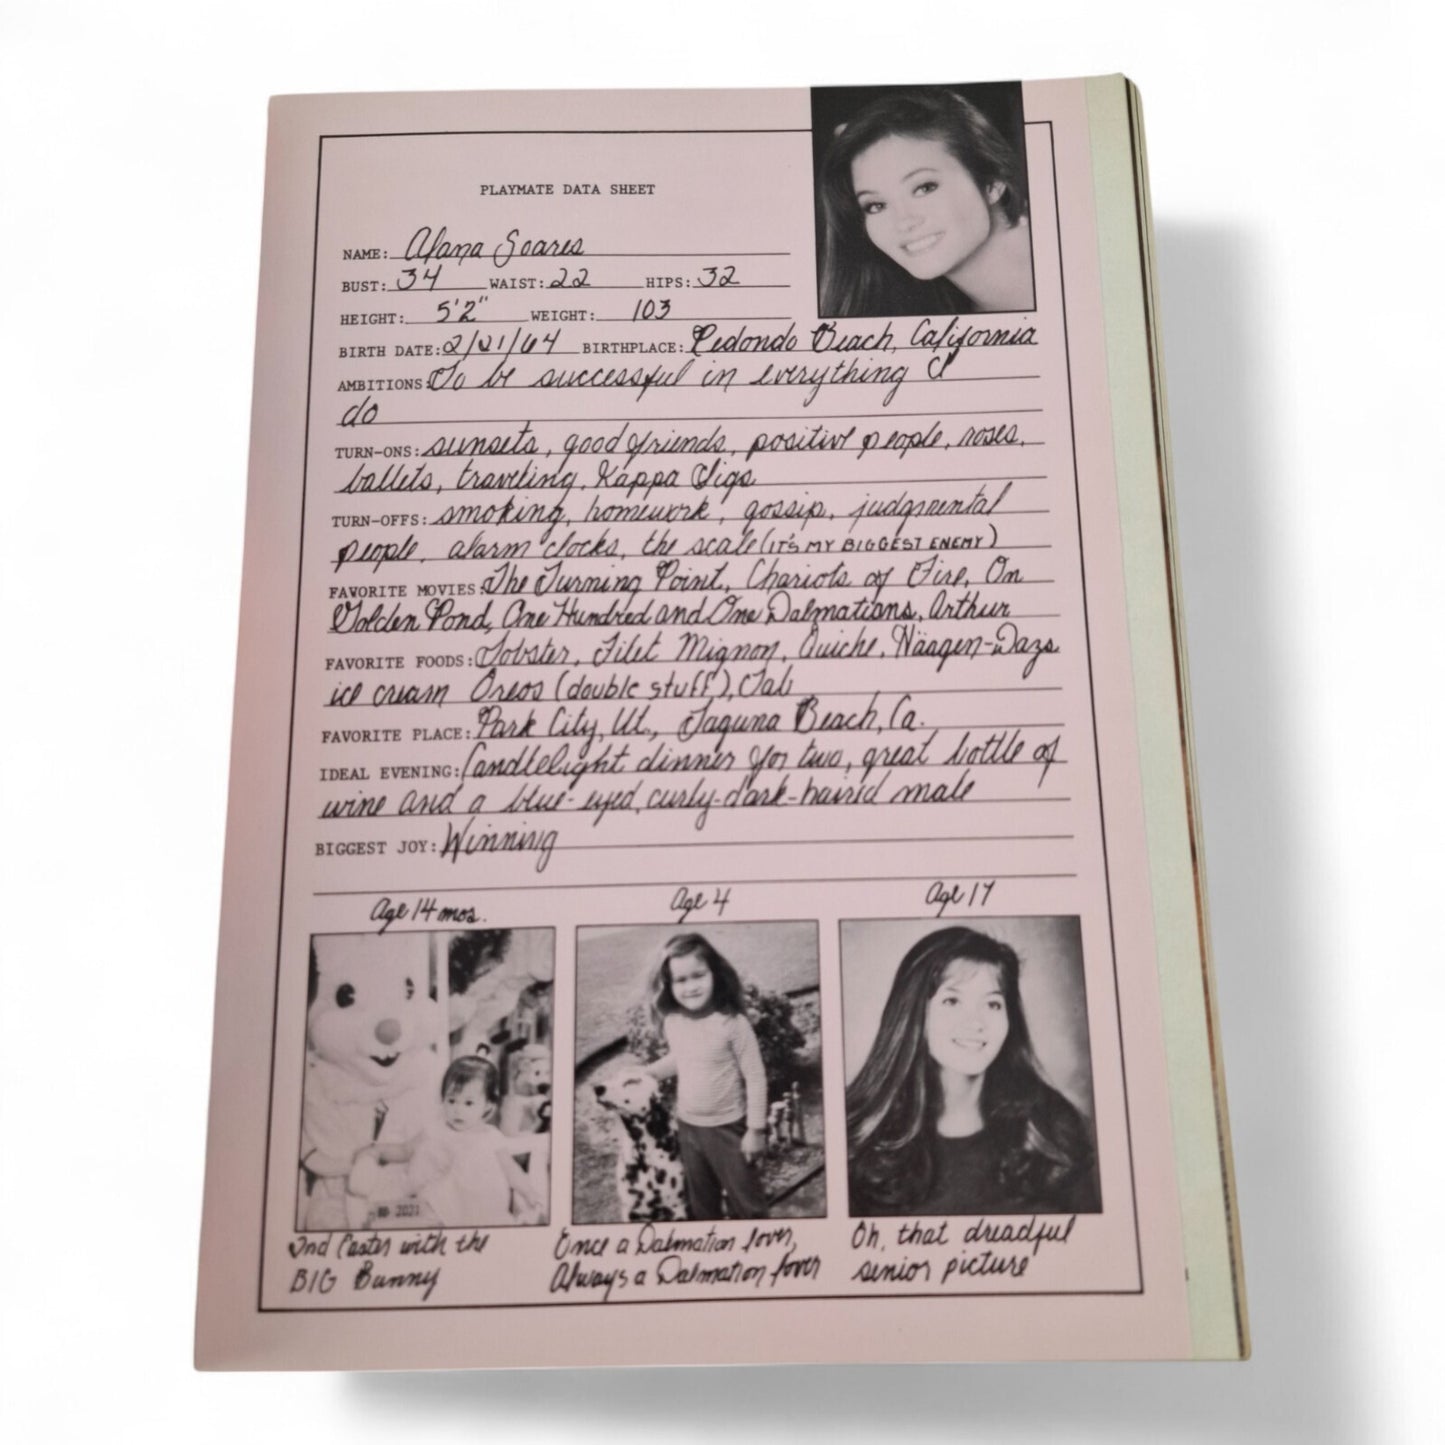 PLAYMATE DATA SHEET
NAME: Alana Soares
BUST: 34 WAIST: 22 HIPS: 32
HEIGHT: 5'2" WEIGHT: 103
BIRTH DATE: 2/21/64 BIRTHPLACE: Redondo Beach, California
AMBITIONS: To be successful in everything I
do
TURN-ONS: sunsets, good friends, positive people, roses,
ballets, traveling, Kappa Sigs
TURN-OFFS: smoking, homework, gossip, judgmental
people, alarm clocks, the scale (IT'S MY BIGGEST ENEMY)
FAVORITE MOVIES: The Turning Point, Chariots of Fire, On
Golden Pond, One Hundred and One Dalmatians, Arthur
FAVORITE FOODS: Lobster, Filet Mignon, Quiche, Häagen-Dazs
ice cream Oreos (double stuff), Tab
FAVORITE PLACE: Park City, Ut., Laguna Beach, Ca.
IDEAL EVENING: Candlelight dinner for two, great bottle of
wine and a blue-eyed, curly-dark-haired male
BIGGEST JOY: Winning
Age 14 mos. Age 4 Age 17
2nd Easter with the
BIG Bunny
Once a Dalmation lover,
Always a Dalmation lover
Oh, that dreadful
senior picture